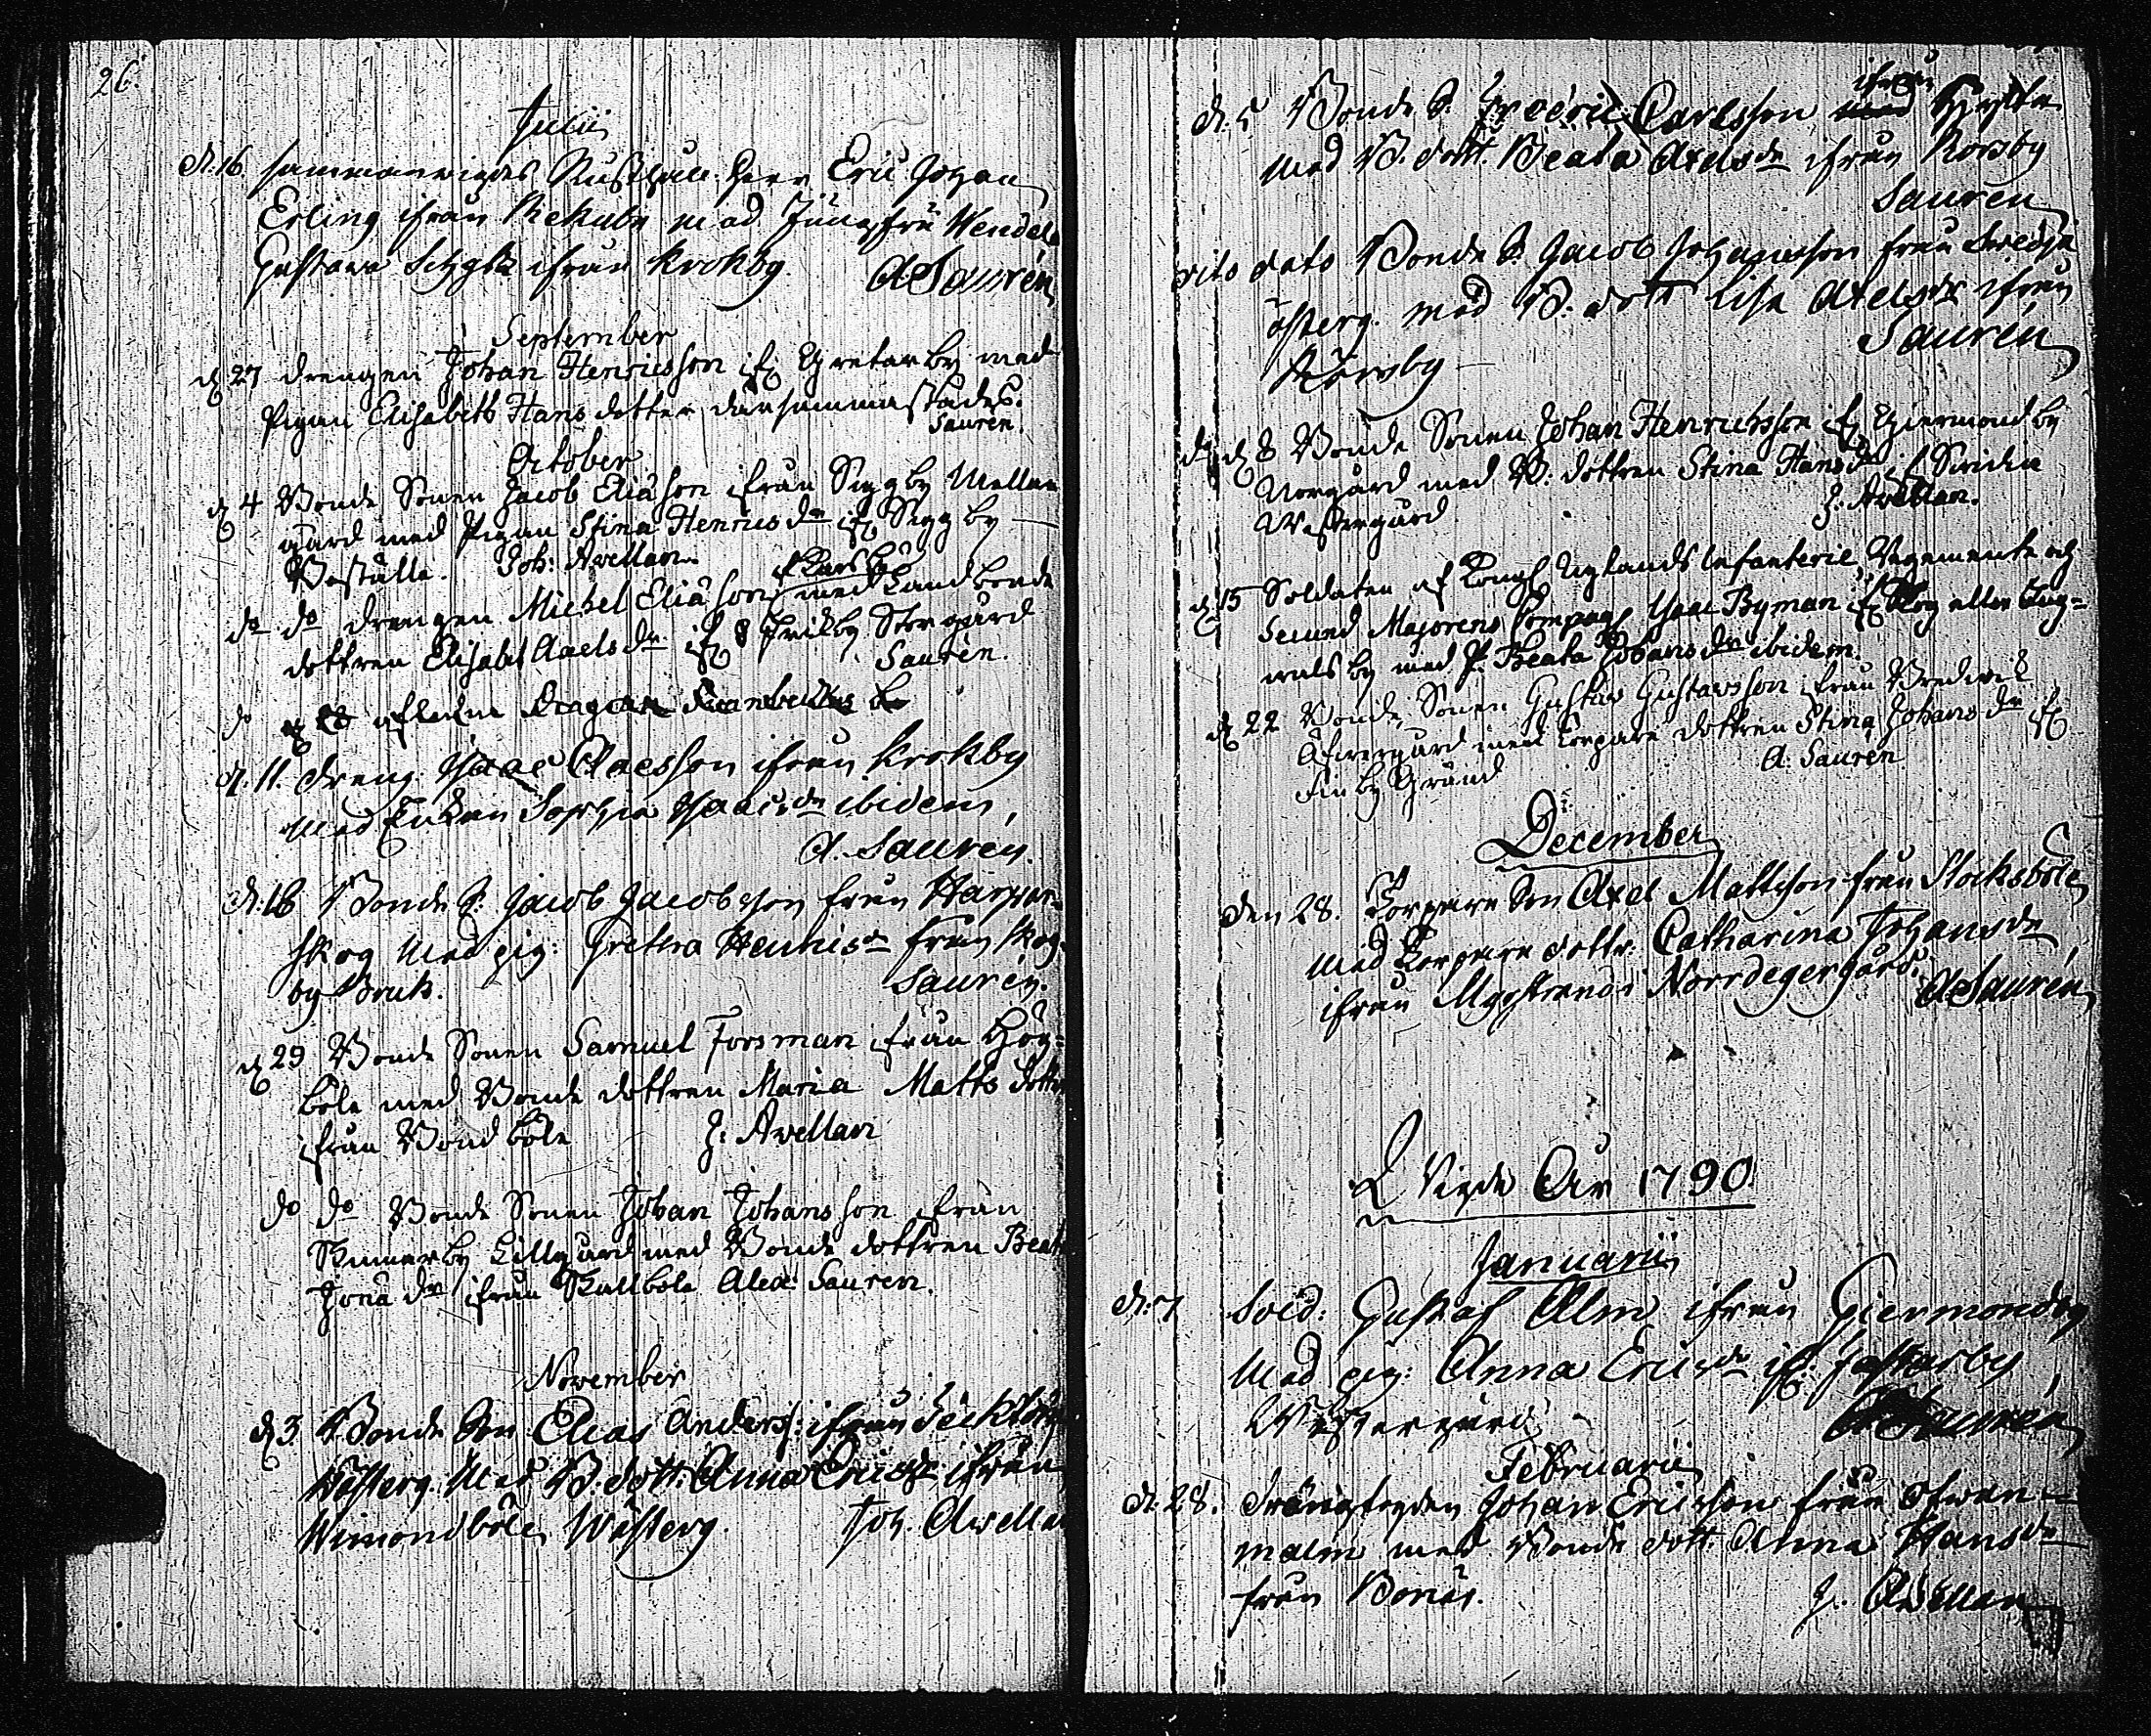 26.
Julii
d. 16. sammanwigdes Rusthåll. Herr Eric Johan
Erling ifrån Rekuby med Jungfru Wendela
Gustava ifrån Krokby. A Saurén
September
d 27 drengen Johan Henricsson if Gretarby med
Pigan Elisabeth Hans dotter dersammastädes.
Saurén.
October
d 4 Bonde Sonen Jacob Eliæson ifrån Siggby Mellan
gård med Pigan Stina Henrics dr if Siggby
Bastulla. Joh: Avellan
do do drengen Michel Eliæson if Karsby med Landbonde
dottren Elisabet Axels dr. if Prestby Storgård
Saurén.
do
d. 11. dreng. Isaac Claesson ifrån Krokby
med Enkan Sophia Isaacsdr ibidem,
A. Saurén.
d. 18 Bonde S. Jacob Jacobsson från Harpar-
skog med pig: Gretha Henricsdr från Skog-
by Bruk. Saurén.
d 29 Bonde Sonen Samuel Forsman ifrån Hög-
böle med Bonde dottren Maria Matts dotter
ifrån Bondböle J: Avellan
do do Bonde Sonen Johan Johansson ifrån
Skinnarby Lillgård med Bonde dottren Beata
Jona dr ifrån Skallböle Alex: Saurén.
November
d 3. Bonde Son Elias Anders: ifrån
Wästerg. med B. dott: Anna Ericsdr ifrån
Wimondböle Wästerg. Joh. Avellan
d. 5 Bonde S. Frederic Carlsson ifrån
med B. dott. Beata Axelsdr ifrån Korsby
Saurén
dito dato Bonde S. Jacob Johansson från Svedja
österg. med B. dott Lisa Axelsdr ifrån
Korsby Saurén
d 8 Bonde Sonen Johan Henricksson if Giermondby
Norgård med B: dottren Stina Hans dr if
Westergård J. Avellan.
d 15 Soldaten af Kongl Nylands Infanterie Regemente och
Second Majorens Compag Isaac Byman if Skog eller Ling-
walsby med P. Beata Johans dr ibidem.
d 22 Bonde Sonen Gustav Gustavsson ifrån Bredwik
Öfwergård med Torpare dottren Stina Johans dr if
Finby Gränd A. Saurén
December
den 28. Torpare Son Axel Mattsson från Stocksböle
med Torpare dottr. Catharina Johansdr
ifrån Norrdegergård. A Saurén
Vigde År 1790
Januarii
d: 7 Sold: Gustaf Alm ifrån Giermondby
med pig: Anna Ericsdr if Fastarby
Westergård A Saurén
Februarii
d. 28. Johan Ericsson från
malm med Bonde dott. Anna Hansdr
från J. Avellan